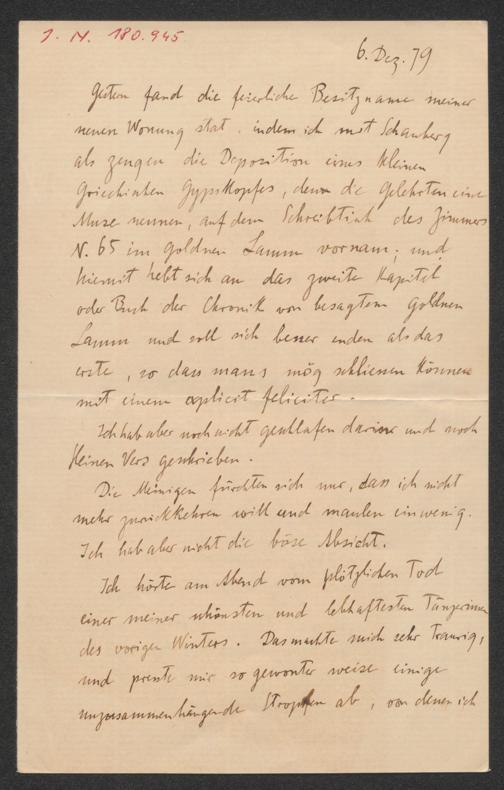 J. N. 180.945
6. Dez. 79
Gestern fand die feierliche Besitzname meiner
neuen Wonung stat. indem ich mit Schauberg
als zeugen die Deposition eines kleinen
Griechischen Gypskopfes, denn die Gelehrten eine
Muse nennen, auf dem Schreibtisch des Zimmers
N. 65 im goldnen Lamm vornam; und
hiemit hebt sich an das zweite Kapitel
oder Buch der Chronik von besagtem goldnen
Lamm und soll sich besser enden als das
erste, so dass mans mög schliessen können
mit einem explicit feliciter.
Ich hab aber noch nicht geschlafen darinnen und noch
keinen Vers geschrieben.
Die Meinigen fürchten sich nur, dass ich nicht
mehr zurückkehren will und maulen ein wenig.
Ich hab aber nicht die böse Absicht.
Ich hörte am Abend vom plötzlichen Tod
einer meiner schönsten und lebhaftesten Tänzerinnen
des vorigen Winters. Das machte mich sehr traurig,
und presste mir so gewonter weise einige
unzusammenhängende Strophen ab, von denen ich